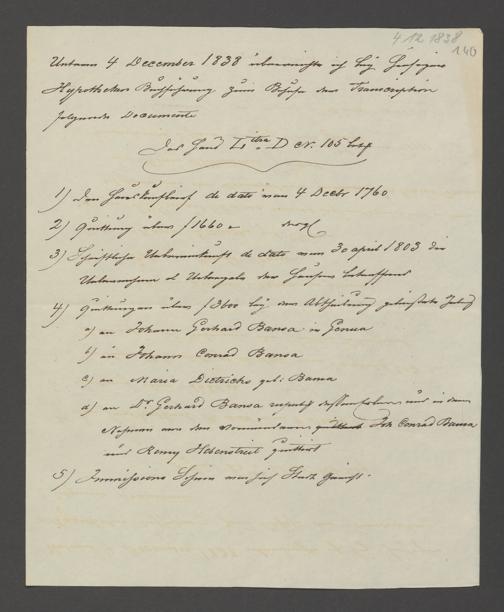 4 12 1838
140
Unterm 4 December 1838 überreichte ich bey hiesigen
Hypotheken Buchführung zum Behufe der Transcription
folgende Documente
Das Haus Litra D No. 105 betr.
1) Den Hauskaufbrief de dato vom 4 Decbr 1760
2) Quittung über f 1660
3) Schriftliche Uebereinkunft de dato vom 30 april 1803 die
Uebernahme & Uebergabe des Hauses betreffend
4) Quittungen über f 3600 bey der Abtheilung geleistete
a) an Johann Gerhard Bansa in Genua
b) an Johann Conrad Bansa
c) an Maria Dietrichs geb: Bansa
d) an Dr Gerhard Bansa und in dem
Nahmen von den Vormündern Joh Conrad Bansa
und Remy Hebenstreit quittirt
5) Immissions Schein